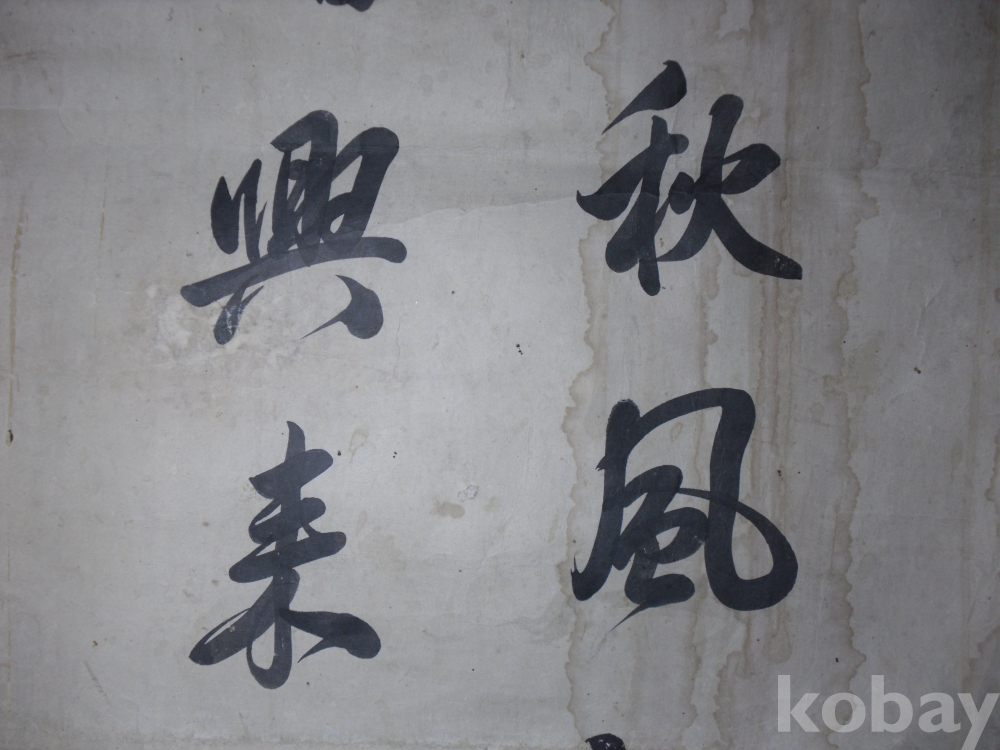 秋風
興来
kobay